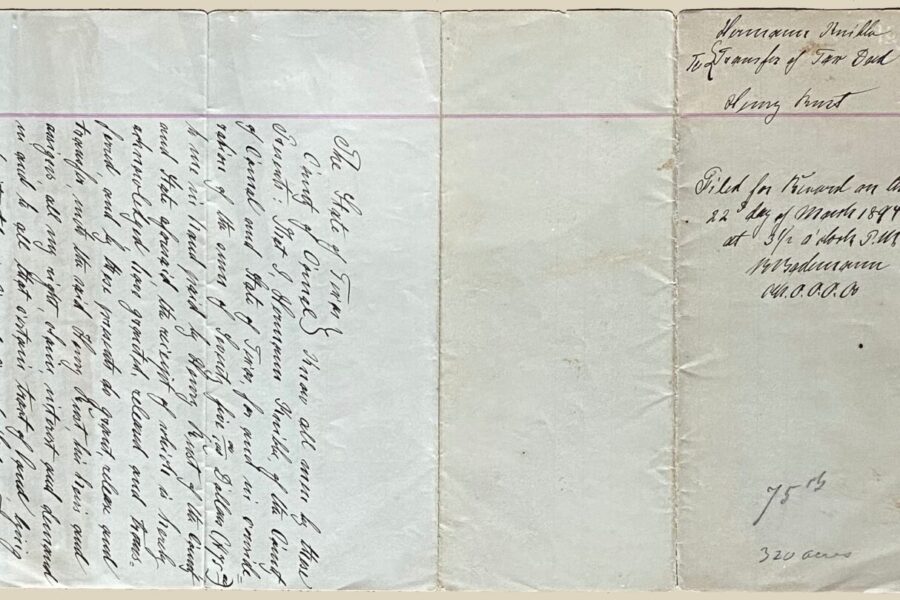 Hermann Knibbe
To { Transfer of Tax Deed
Henry Rust
Filed for Record on the
22d day of March 1894
at 3 1/2 o'clock P.M
75 00
320 acres
The State of Texas }
County of Comal } Know all men by these
Presents: That I Hermann Knibbe, of the County
of Comal and State of Texas, for and in consid-
eration of the sum of Seventy five Dollars ($75 00)
to me in hand paid by Henry Rust of the County
and State aforesaid the receipt of which is hereby
acknowledged have granted, released and trans-
ferred, and by these presents do grant, release and
transfer, unto the said Henry Rust his heirs and
assigns all my right, claim, interest and demand
in and to all that certain tract of land lying